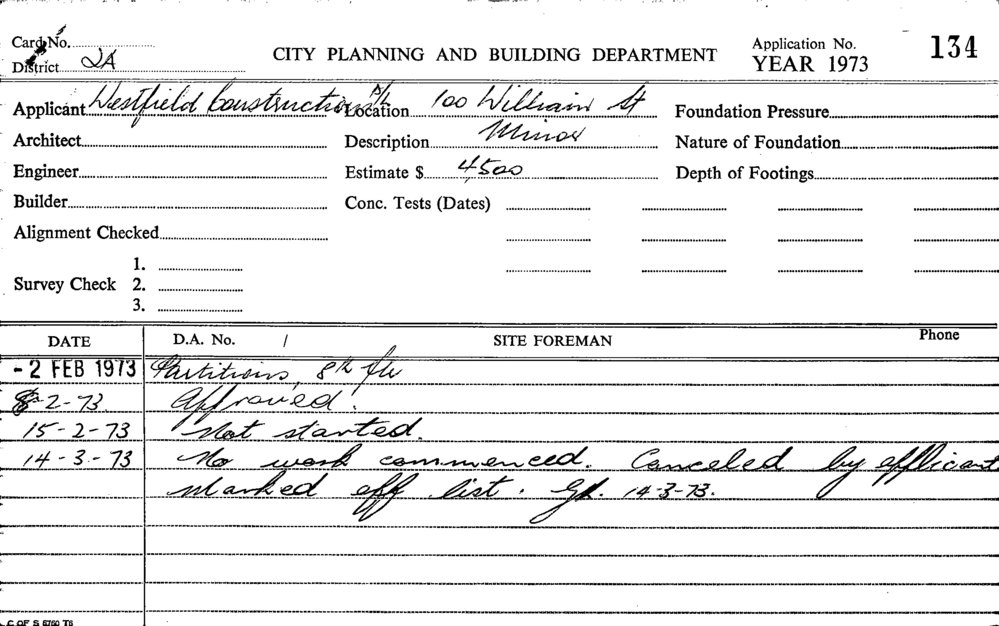 Card No.
District 2A
CITY PLANNING AND BUILDING DEPARTMENT
Application No. 134
YEAR 1973
Applicant Westfield Constructions P/L Location 100 William St Foundation Pressure
Architect Description Minor Nature of Foundation
Engineer Estimate $ 4500 Depth of Footings
Builder Conc. Tests (Dates)
Alignment Checked
1.
Survey Check 2.
3.
DATE D.A. No. / SITE FOREMAN Phone
- 2 FEB 1973 Partitions, 8th flr
8-2-73. Approved.
15-2-73 Not started.
14-3-73 No work commenced. Canceled by applicant
Marked off list. 14-3-73.
C OF S 6760 T6